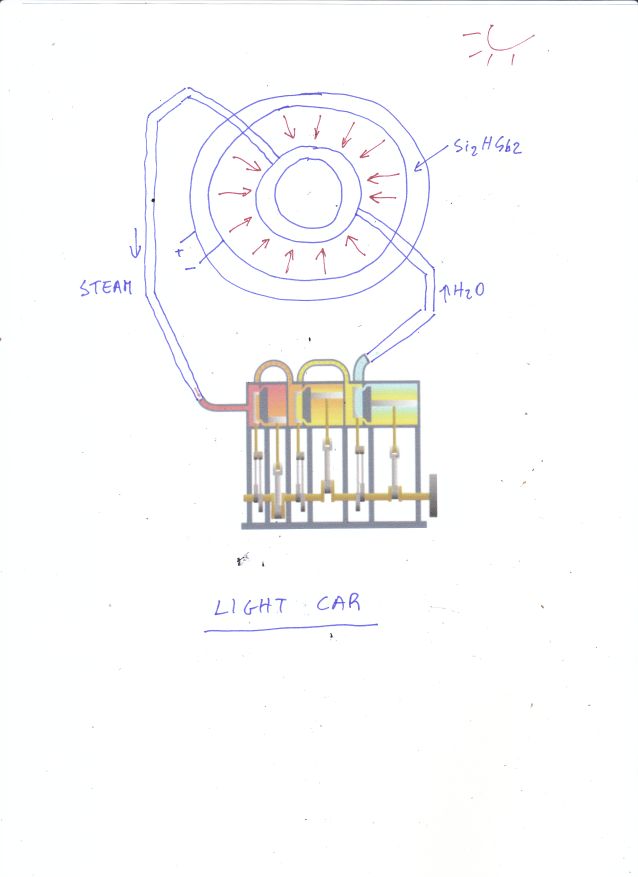 Si₂HSb2
+
−
STEAM
H₂O
LIGHT CAR